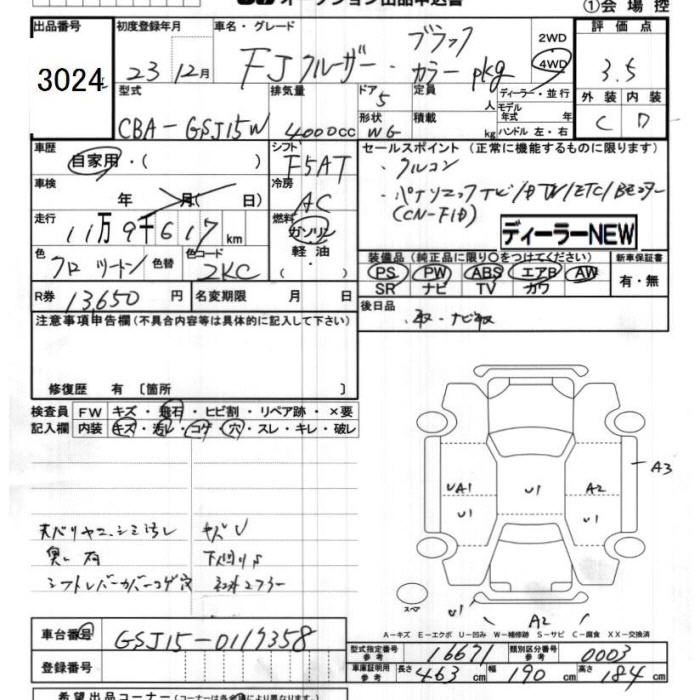 オークション出品申込書
①会場控
出品番号 初度登録年月 車名・グレード 評価点
3024 23 12月 FJクルーザー・ブラックカラーpkg 2WD 4WD 3.5
型式 排気量 ドア 定員 ディーラー・並行 外装 内装
CBA-GSJ15W 4000cc 5 人 モデル年式 年 C D
形状 積載 WG kg ハンドル 左・右
車歴 シフト セールスポイント (正常に機能するものに限ります)
自家用・( ) F5AT ・クルコン
車検 年 月( 日) 冷房 AC ・パナソニックナビ/DTV/ETC/Bモニター
(CN-F1D)
走行 11万9千617km 燃料 ガソリン・軽油・ ディーラーNEW
色 クロ ツートン 色替 色コード 2KC
装備品 (純正品に限り○をつけてください) 新車保証書
PS PW ABS エアB AW 有・無
SR ナビ TV カワ
R券 13,650円 名変期限 月 日
後日品
注意事項申告欄(不具合内容等は具体的に記入して下さい)
修復歴 有 〔箇所 〕
検査員 FW キズ・飛石・ヒビ割・リペア跡・×要
記入欄 内装 キズ・汚レ・コゲ・穴・スレ・キレ・破レ
A3
UA1 U1 A2
U1 U1
シミ汚レ キズU
臭い有 下回りS
シフトレバーカバーコゲ穴
スペア
U1 A2
A-キズ E-エクボ U-凹み W-補修跡 S-サビ C-腐食 XX-交換済
車台番号 GSJ15-0117358
型式指定番号 参考 16671 類別区分番号 参考 0003
登録番号
車庫証明用 参考 長さ 463cm 幅 190cm 高さ 184cm
希望出品コーナー